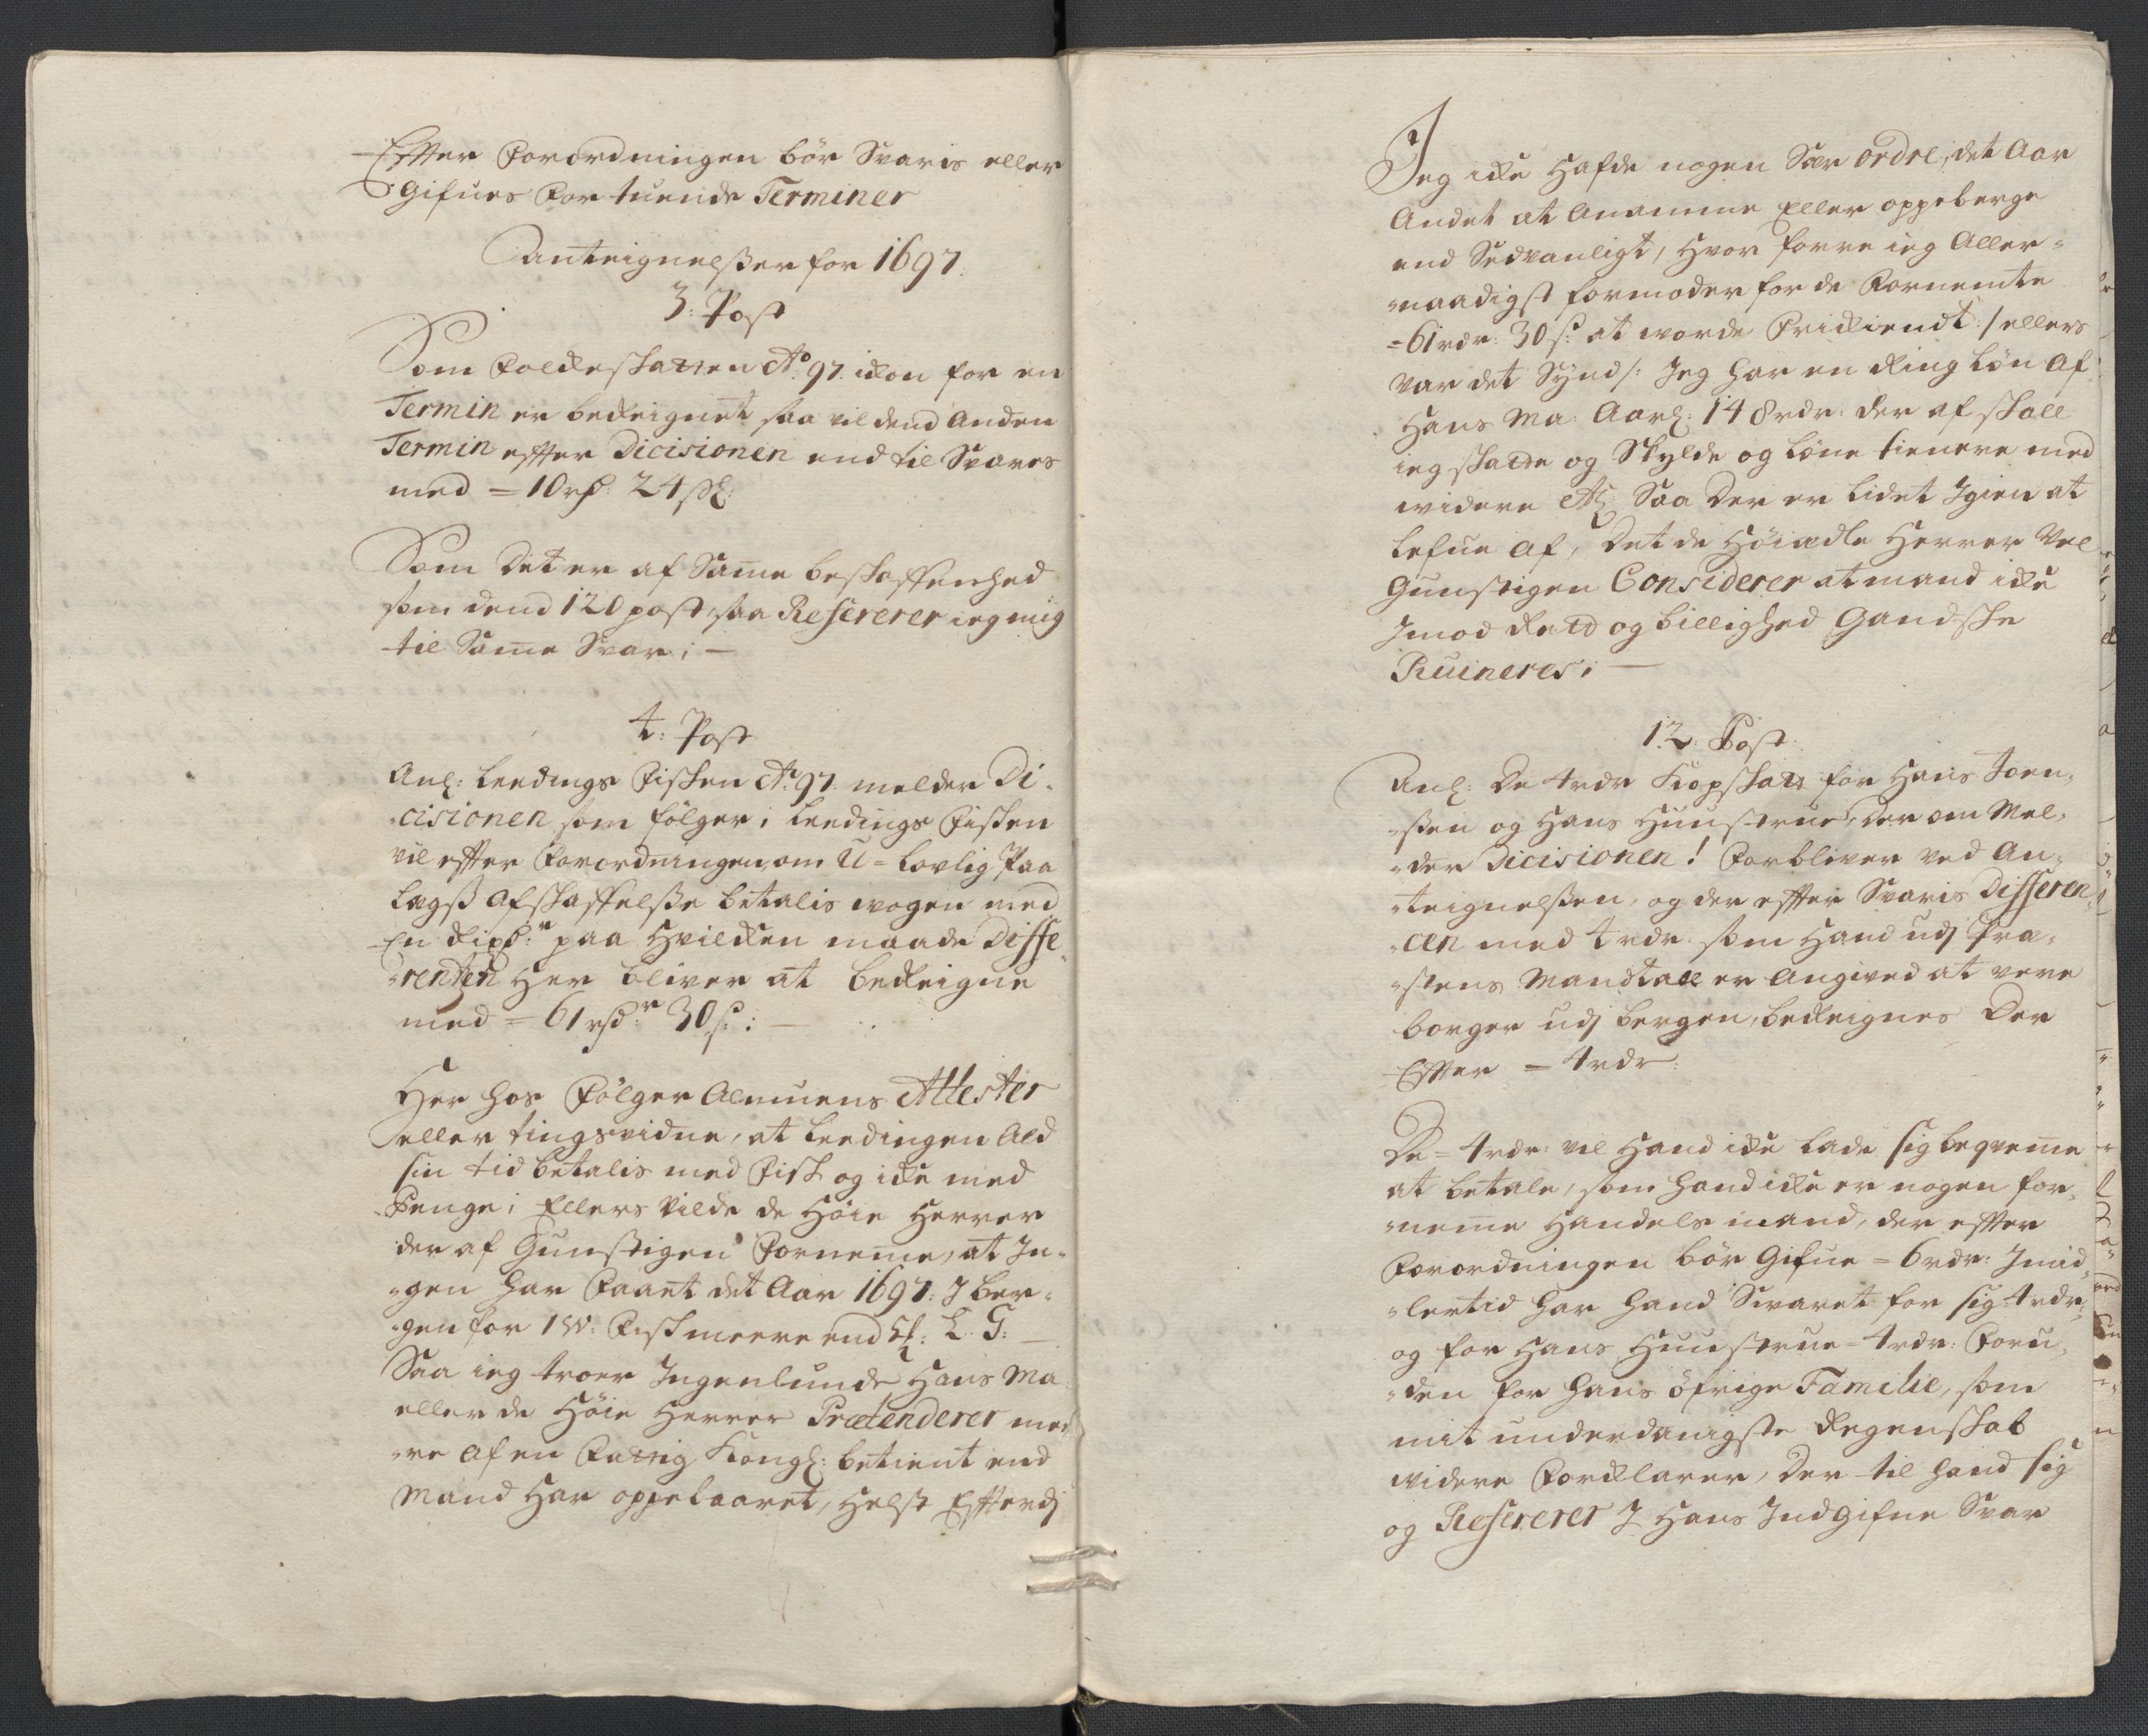 Effter Forordningen bör Svaris eller
Gifues for tuende Terminer
Anteignelsser for 1697.
3: Post
Som Folcheskatten Ao 97. ickon for en
Termin er bereignet saa vil dend Anden
Termin effter Dicisionen end til Svares
med = 10 rd: 24 sk:
Som Det er af Same beskaffenhed
som dend 120 post, saa Refererer ieg mig
til Same Svar; —
4: Post
Anl: Leedings Fisken Ao 97. melder Di-
-cisionen som følger; Leedings Fisken
vil effter Forordningen om U-lovlig Paa
Legs Afskaffelsse betalis wogen med
En Rixdr: paa Hvilken maade Diffe-
-rentzen Her bliver at Bereigne
med = 61 rdr: 30 s: —
Her hos Følger Almuens Attester
eller tingsvidne, at Leedingen Ald
sin tid betalis med Fisk og icke med
Penge; Ellers Vilde de Höie Herrer
der af Gunstigen Forneme, at In-
-gen har Faaet det Aar 1697. J Ber-
-gen for 1 W: Fisk meere end
Saa ieg troer Ingenlunde Hans Ma
eller de Höie Herrer Prætenderer mee
-re Af en Fattig Kongl: betient end
Mand Har oppebaaret, Helst Efterdj
Jeg icke Hafde nogen Sær ordre, det Aar
Andet at Anamme Eller oppeberge
end Sedvanligt, Hvor forre ieg Aller-
-naadigst formoder for de Fornemte
= 61 rdr: 30 s: at worde Frikiendt /: ellers
var det Synd :/ Jeg har en Ring Løn Af
Hans Ma: Aarl: 148 rdr: der af skall
ieg skatte og Skylde og Løne tienere med
widere Saa Der er Lidet Igien at
Lefue af, Det de Höiædle Herrer Vel
Gunstigen Considerer at mand icke
Imod Rett og billighed Gandske
Ruineres; —
12. Post
Anl: De 4 rdr Kopskatt for Hans Joen-
-ssen og Hans Huustrue, Der om Mel-
-der Dicisionen! Forbliver ved An-
-teignelssen, og der effter Svaris Differen-
-cen med 4 rdr: som Hand udj Præ-
-stens Mandtall er Angived at vere
borger udj Bergen, bereignes Der
Effter = 4 rdr:
De = 4 rdr: vil Hand icke Lade sig beqveme
at betale, som Hand icke er nogen for-
-neme Handels mand, der effter
Forordningen bör Gifue = 6 rdr: Imid-
-lertid har Hand Svaret for sig 4 rdr:
og for Hans Huustrue = 4 rdr: Foru-
-den for hans öfrige Familie, som
mit underdanigste Regenskab
widere Forklarer, Der til Hand sig
og Refererer J Hans Indgifne Svar